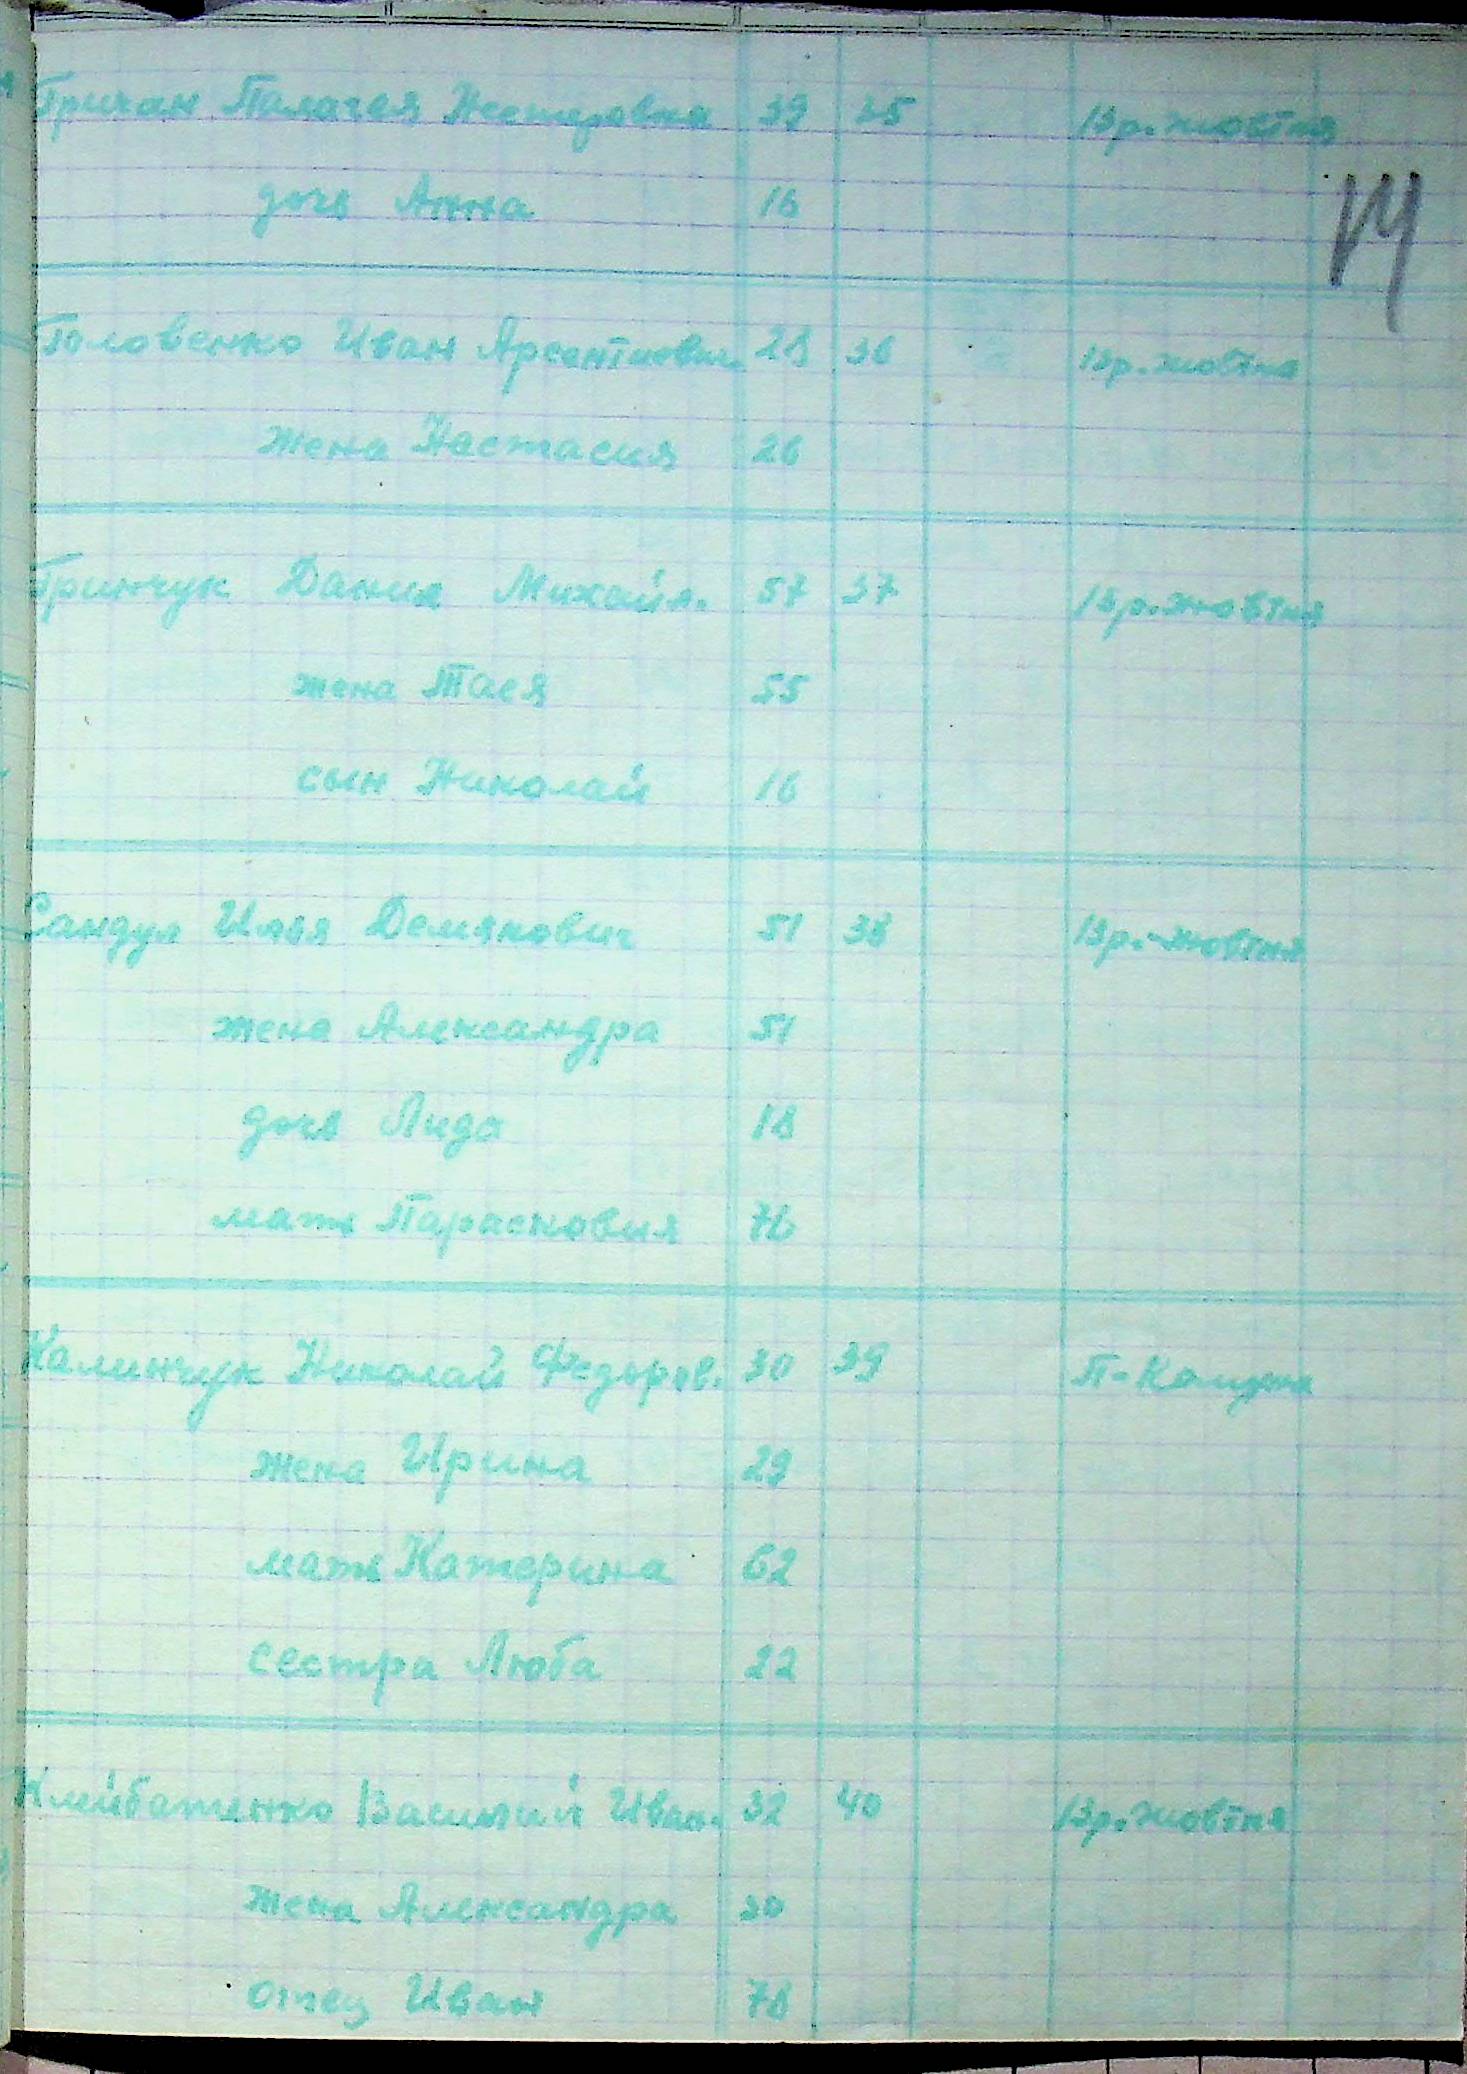 Гричан Палагея Нестеровна 39 35 13р. жовтня
дочь Анна 16
Головенко Иван Арсентиович 28 36 13р. жовтня
жена Настасия 26
Гринчук Данил Михайл. 57 37 13р. жовтня
жена Тася 55
сын Николай 16
Сандул Илья Демянович 51 38 13р. жовтня
жена Александра 51
дочь Лида 18
мать Парасковия 76
Калинчук Николай Федоров. 30 39 П-Комуна
жена Ирина 29
мать Катерина 62
сестра Люба 22
Клейбатенко Василий Иван. 32 40 13р. жовтня
жена Александра 30
отец Иван 78